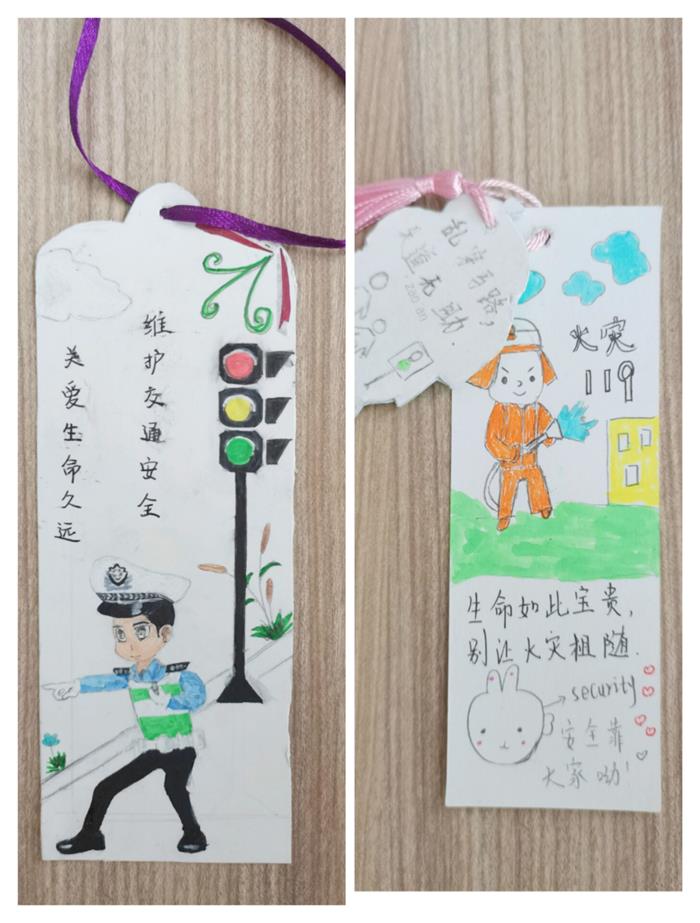 维护交通安全
关爱生命久远
乱穿马路，
无助.
zao an
火灾
119
生命如此宝贵，
别让火灾相随.
security
安全靠
大家呦!